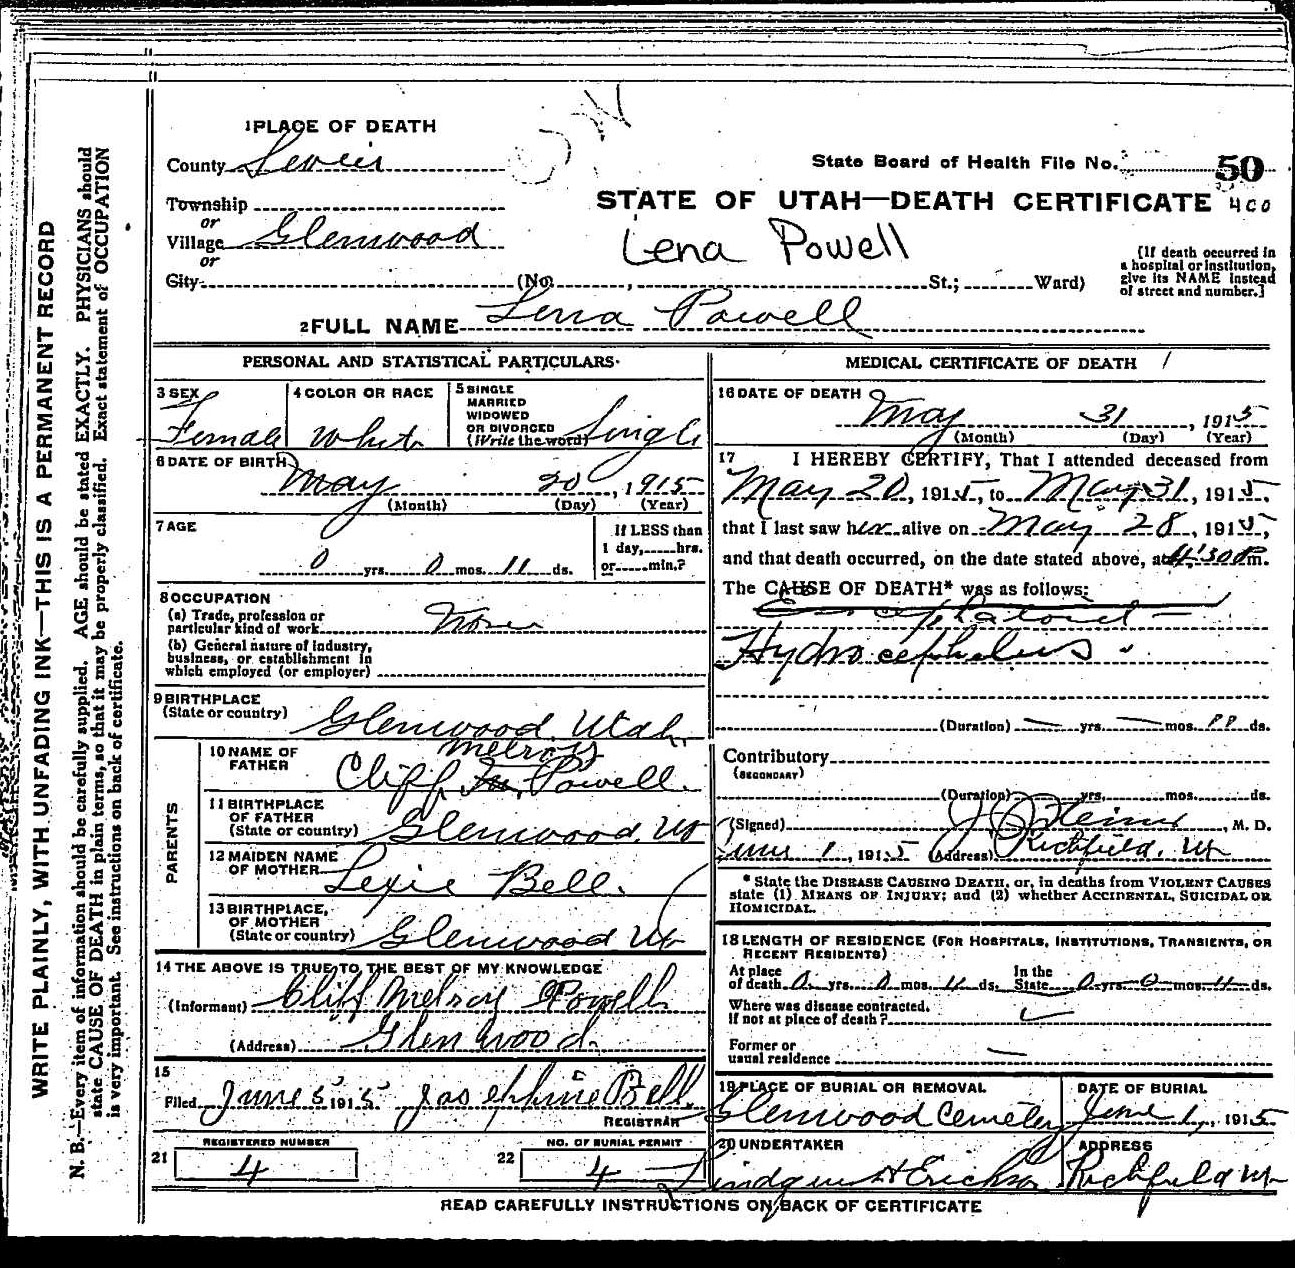 WRITE PLAINLY, WITH UNFADING INK—THIS IS A PERMANENT RECORD
N. B.—Every item of information should be carefully supplied. AGE should be stated EXACTLY. PHYSICIANS should
state CAUSE OF DEATH in plain terms, so that it may be properly classified. Exact statement of OCCUPATION
is very important. See instructions on back of certificate.
1 PLACE OF DEATH
County Sevier
State Board of Health File No. 50
Township
STATE OF UTAH—DEATH CERTIFICATE 400
or
Village Glenwood
Lena Powell
or
City (No. , St.; Ward)
[If death occurred in
a hospital or institution,
give its NAME instead
of street and number.]
2 FULL NAME Lena Powell
PERSONAL AND STATISTICAL PARTICULARS
3 SEX
Female
4 COLOR OR RACE
White
5 SINGLE
MARRIED
WIDOWED
OR DIVORCED
(Write the word) Single
6 DATE OF BIRTH
May 20, 1915
(Month) (Day) (Year)
7 AGE
0 yrs. 0 mos. 11 ds.
If LESS than
1 day, hrs.
or min.?
8 OCCUPATION
(a) Trade, profession or
particular kind of work None
(b) General nature of industry,
business, or establishment in
which employed (or employer)
9 BIRTHPLACE
(State or country) Glenwood Utah
PARENTS
10 NAME OF
FATHER
Melroy
Cliff Powell.
11 BIRTHPLACE
OF FATHER
(State or country) Glenwood. Ut
12 MAIDEN NAME
OF MOTHER Lexie Bell.
13 BIRTHPLACE,
OF MOTHER
(State or country) Glenwood Ut
14 THE ABOVE IS TRUE TO THE BEST OF MY KNOWLEDGE
(Informant) Cliff Melroy Powell
(Address) Glenwood.
15
Filed June 5, 1915 Josephine Bell.
REGISTRAR
REGISTERED NUMBER
21 4
NO. OF BURIAL PERMIT
22 4
MEDICAL CERTIFICATE OF DEATH
16 DATE OF DEATH
May 31, 1915
(Month) (Day) (Year)
17 I HEREBY CERTIFY, That I attended deceased from
May 20, 1915, to May 31, 1915,
that I last saw her alive on May 28, 1915,
and that death occurred, on the date stated above, at 4:30 P m.
The CAUSE OF DEATH* was as follows:
Hydrocephalus
(Duration) — yrs. — mos. 11 ds.
Contributory
(SECONDARY)
(Duration) yrs. mos. ds.
(Signed) , M. D.
June 1, 1915 (Address) Richfield. Ut
* State the DISEASE CAUSING DEATH, or, in deaths from VIOLENT CAUSES
state (1) MEANS OF INJURY; and (2) whether ACCIDENTAL, SUICIDAL OR
HOMICIDAL.
18 LENGTH OF RESIDENCE (FOR HOSPITALS, INSTITUTIONS, TRANSIENTS, OR
RECENT RESIDENTS)
At place
of death 0 yrs. 0 mos. 11 ds.
In the
State 0 yrs. 0 mos. 11 ds.
Where was disease contracted.
If not at place of death?
Former or
usual residence —
19 PLACE OF BURIAL OR REMOVAL
Glenwood Cemetery
DATE OF BURIAL
June 1, 1915
20 UNDERTAKER
ADDRESS
Richfield Ut
READ CAREFULLY INSTRUCTIONS ON BACK OF CERTIFICATE